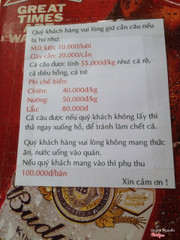 GREAT
TIMES
WA
Quý khách hàng vui lòng giữ cần câu nếu
bị hư như:
Mất lưới: 10.000/lưới
Gãy cần: 20.000/cần
Cá câu được tính 55.000đ/kg như cá rô,
cá diêu hồng, cá trê
Phí chế biến:
Chiên: 40.000đ/kg
Nướng: 50.000đ/kg
Lẩu: 80.000đ
Cá câu được nếu quý khách không lấy thì
thả ngay xuống hồ, để tránh làm chết cá.
Quý khách hàng vui lòng không mang thức
ăn, nước uống vào quán.
Nếu quý khách mang vào thì phụ thu
100.000đ/bàn
Xin cảm ơn !
Bud